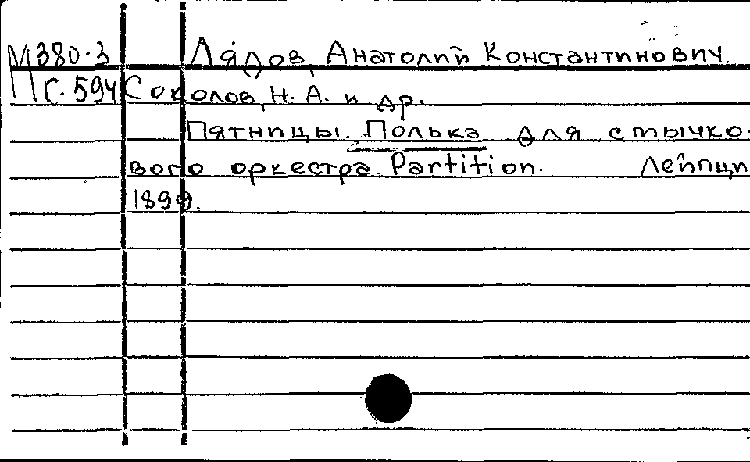 М380-3 Лядов, Анатолий Константинович.
С-594 Соколов, Н. А. и др.
Пятницы. Полька для смычко-
вого оркестра. Partition. Лейпциг
1899.